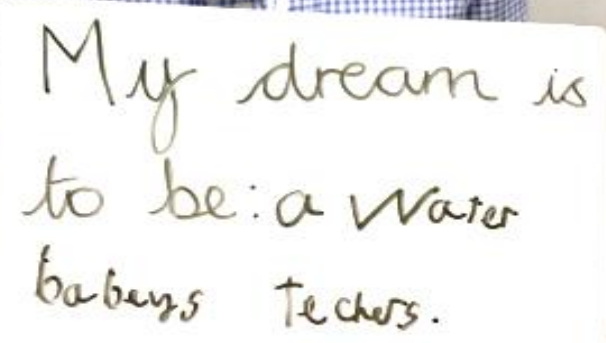 My dream is
to be: a Water
babeys Techers.